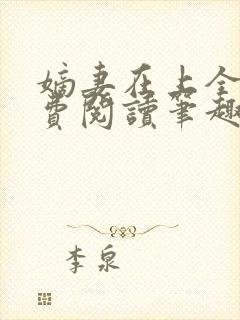 嫡妻在上全
费閱讀筆趣
李泉